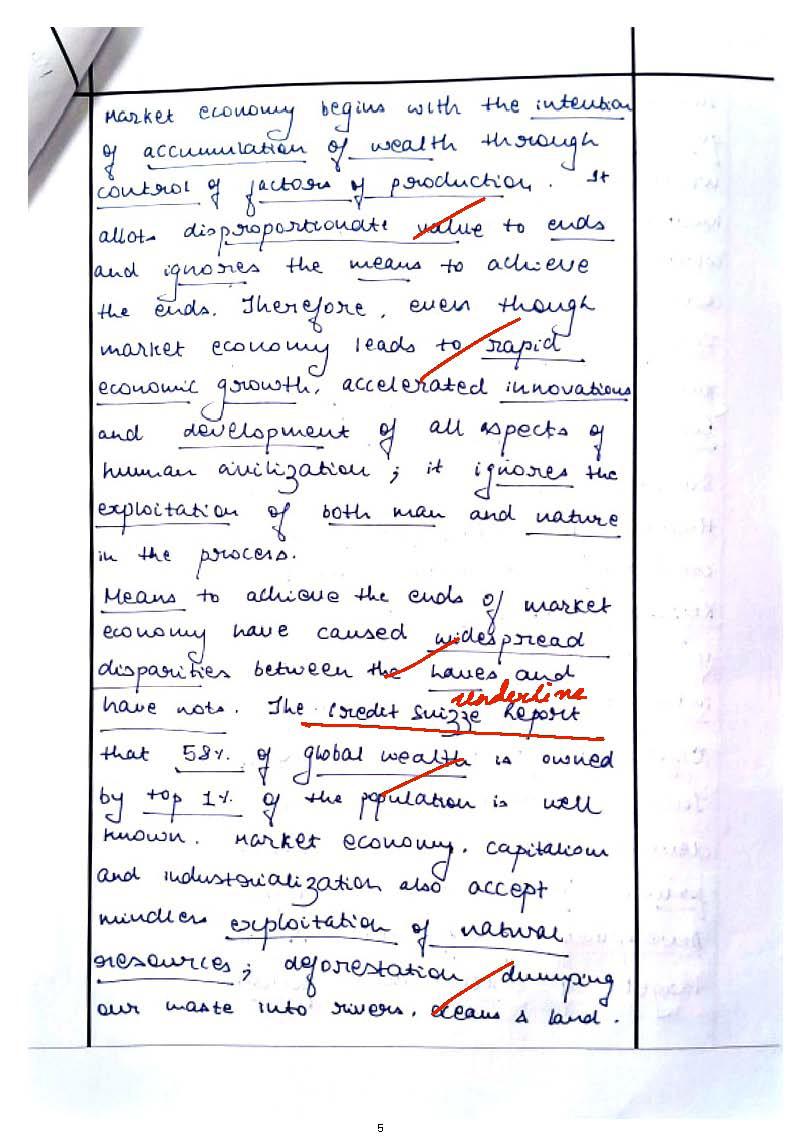 Market economy begins with the intention
of accumulation of wealth through
control of factors of production. It
allots disproportionate value to ends
and ignores the means to achieve
the ends. Therefore, even though
market economy leads to rapid
economic growth, accelerated innovations
and development of all aspects of
human civilization; it ignores the
exploitation of both man and nature
in the process.
Means to achieve the ends of market
economy have caused widespread
disparities between the haves and
underline
have nots. The Credit Suizze Report
that 58% of global wealth is owned
by top 1% of the population is well
known. Market economy, capitalism
and industrialization also accept
mindless exploitation of natural
resources; deforestation, dumping
our waste into rivers, oceans & land.
5